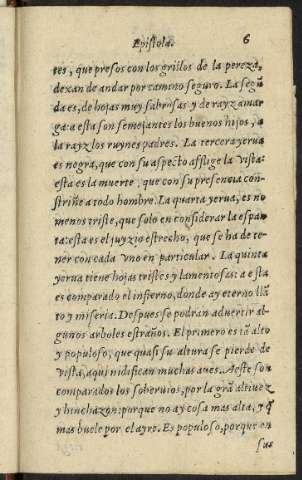 Epistola.
6
tes, que presos con los grillos de la pereza,
dexan de andar por camino seguro. La segũ
da es, de hojas muy sabrosas y de rayz amar
ga: a esta son semejantes los buenos hijos, a
la rayz los ruynes padres. La tercera yerua
es negra, que con su aspecto afflige la vista:
esta es la muerte, que con su presencia con-
striñe a todo hombre. La quarta yerua, es no
menos triste, que solo en considerar la espan
ta: esta es el juyzio estrecho, que se ha de te-
ner con cada vno en particular. La quinta
yerua tiene hojas tristes y lamentosas: a esta
es comparado el infierno, donde ay eterno llã
to y miseria. Despues se podran aduertir al-
gunos arboles estraños. El primero es tã alto
y populoso, que quasi su altura se pierde de
vista, aqui nidifican muchas aues. A este son
comparados los soberuios, por la grã altiuez
y hinchazon: porque no ay cosa mas alta, y q̃
mas buele por el ayre. Es populoso, porque en
sus